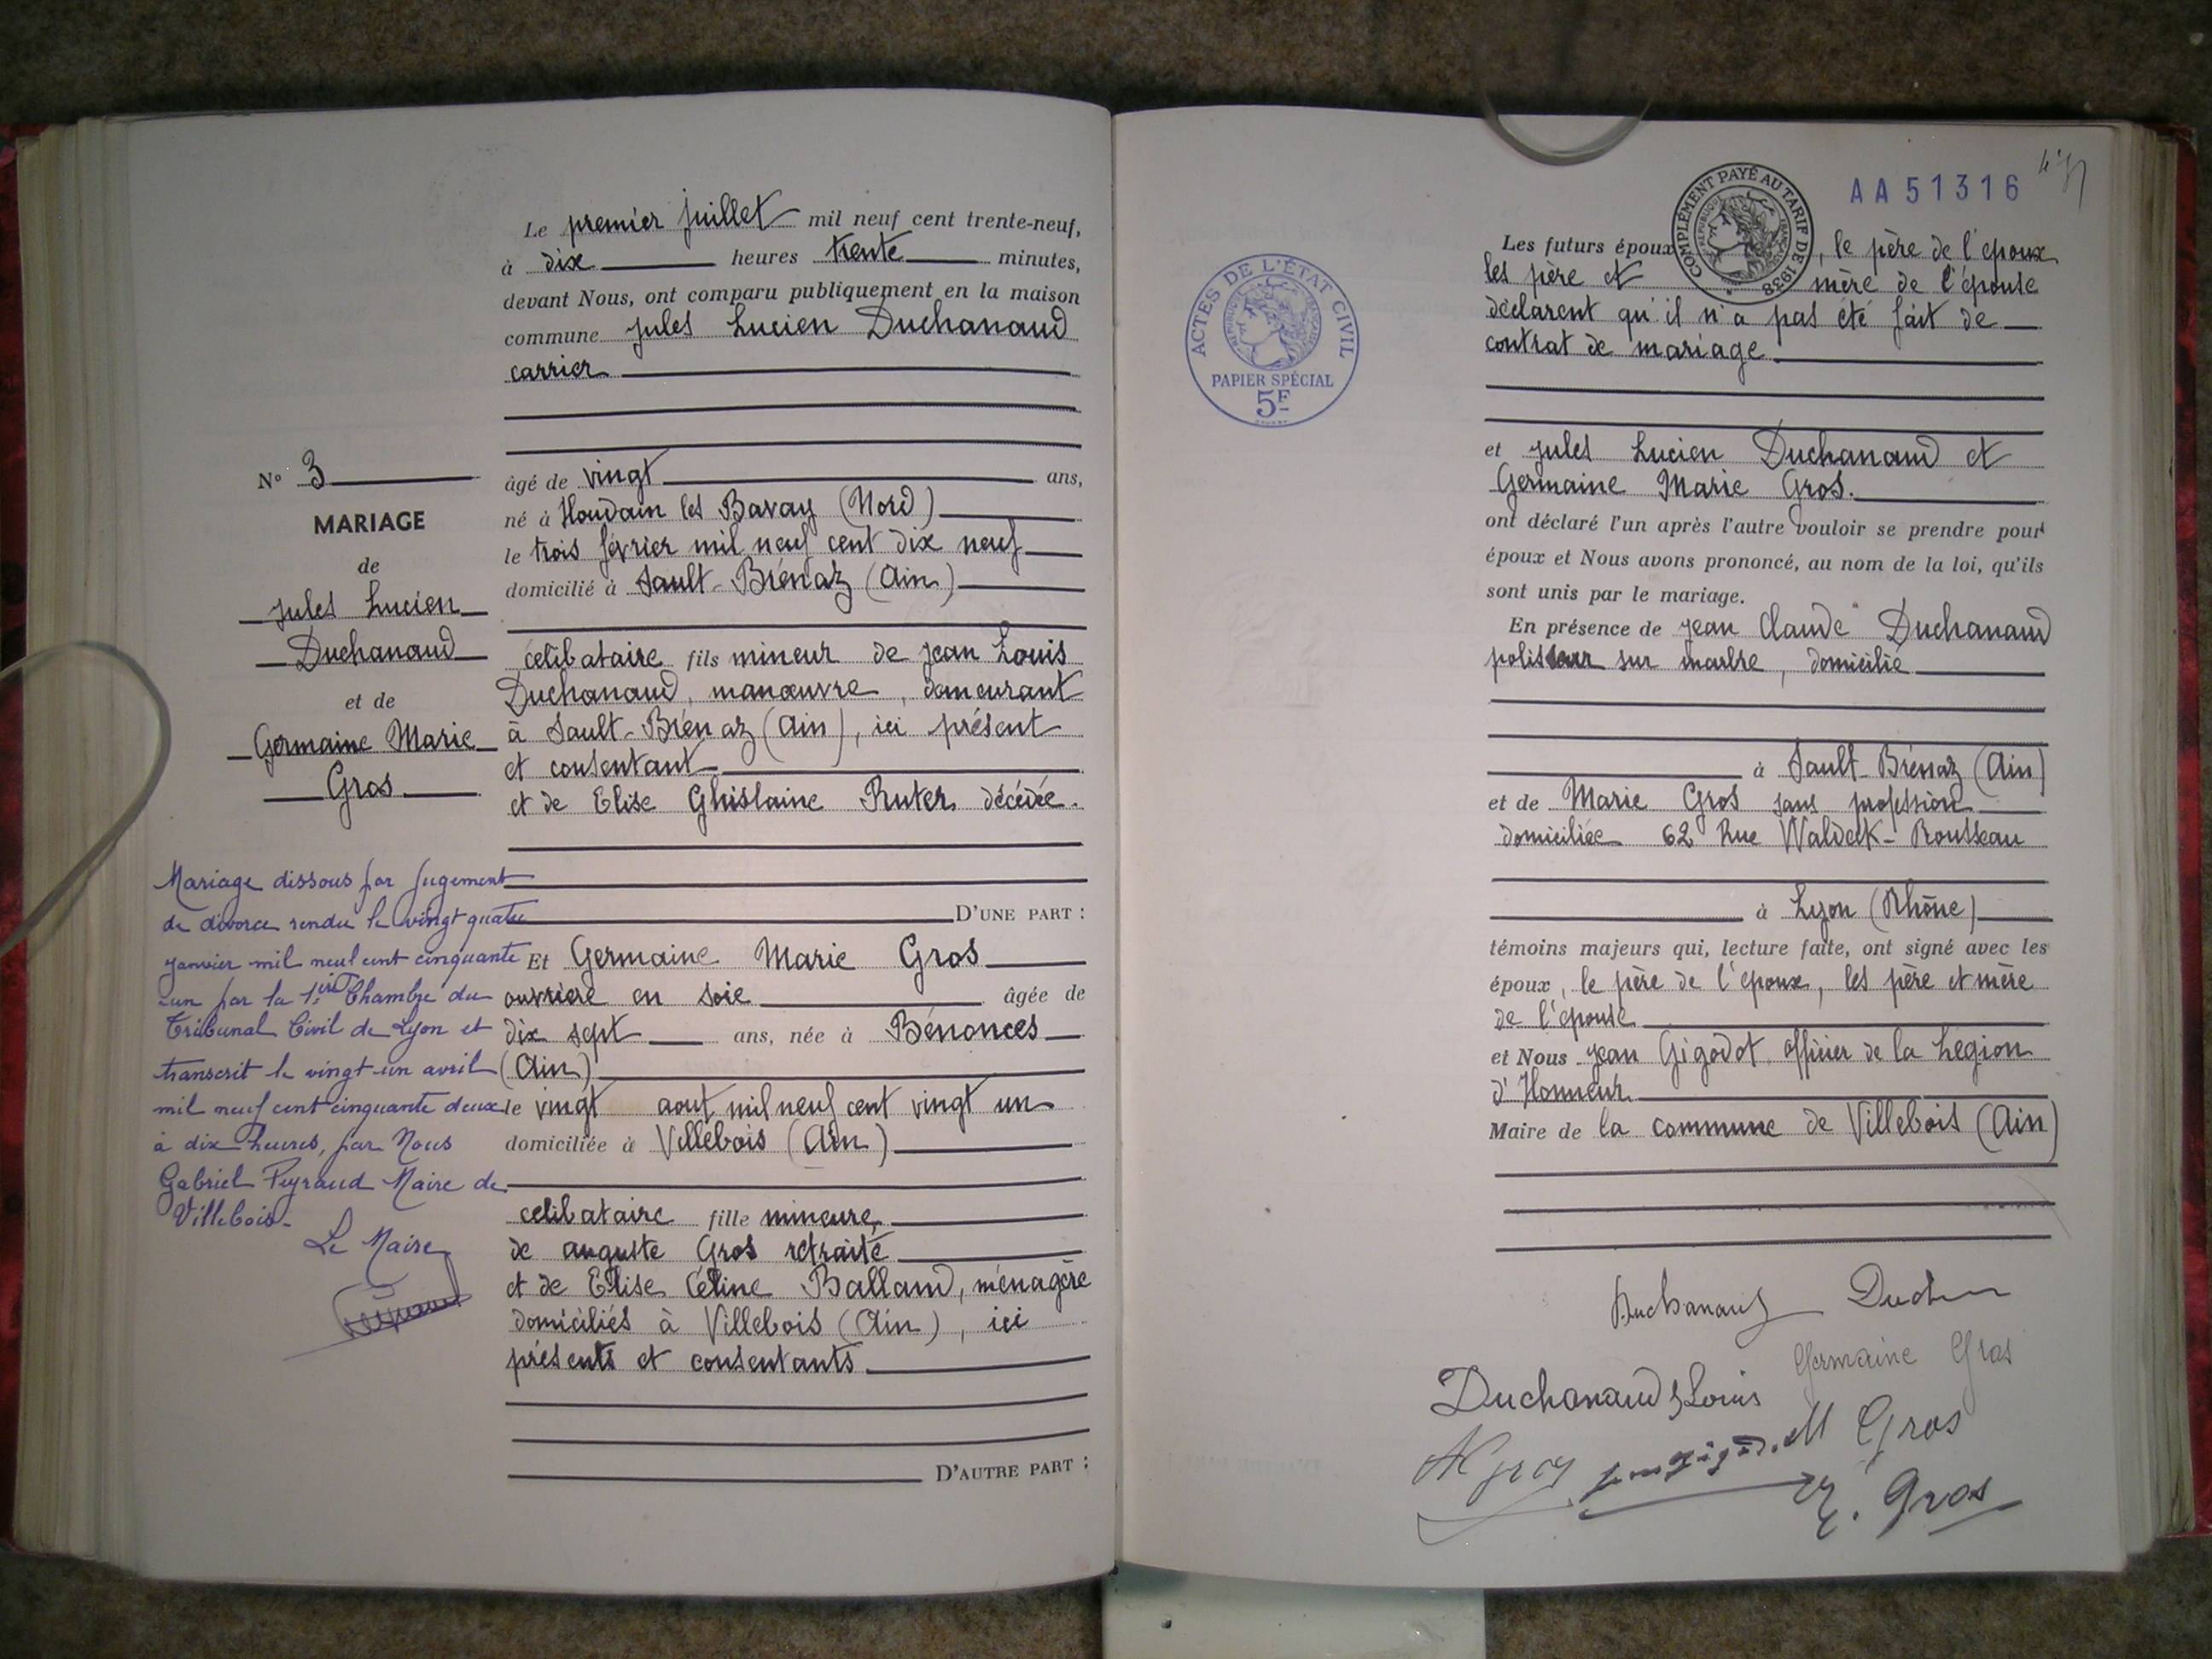 Le premier juillet mil neuf cent trente-neuf,
à dix heures trente minutes,
devant Nous, ont comparu publiquement en la maison
commune Jules Lucien Duchanaud
carrier
N° 3
MARIAGE
de
Jules Lucien
Duchanaud
et de
Germaine Marie
Gros
âgé de vingt ans,
né à Houdain les Bavay (Nord)
le trois février mil neuf cent dix neuf
domicilié à Sault-Brénaz (Ain)
célibataire fils mineur de Jean Louis
Duchanaud, manœuvre, demeurant
à Sault-Brénaz (Ain), ici présent
et consentant
et de Elise Ghislaine Ruter décédée.
D'UNE PART :
Mariage dissous par jugement
de divorce rendu le vingt quatre
janvier mil neuf cent cinquante
un par la 1ière Chambre du
Tribunal Civil de Lyon et
transcrit le vingt-un avril
mil neuf cent cinquante deux
à dix heures, par Nous
Gabriel Peyraud Maire de
Villebois.
Le Maire
Et Germaine Marie Gros
ouvrière en soie âgée de
dix sept ans, née à Bénonces
(Ain)
le vingt aout mil neuf cent vingt un
domiciliée à Villebois (Ain)
célibataire fille mineure,
de auguste Gros retraité
et de Elise Céline Balland, ménagère
domiciliés à Villebois (Ain), ici
présents et consentants
D'AUTRE PART :
ACTES DE L'ÉTAT CIVIL
PAPIER SPÉCIAL
5F
COMPLÉMENT PAYÉ AU TARIF DE 1938
AA51316
Les futurs époux, le père de l'époux
les père et mère de l'épouse
déclarent qu'il n'a pas été fait de
contrat de mariage
et Jules Lucien Duchanaud et
Germaine Marie Gros.
ont déclaré l'un après l'autre vouloir se prendre pour
époux et Nous avons prononcé, au nom de la loi, qu'ils
sont unis par le mariage.
En présence de Jean Claude Duchanaud
polisseur sur marbre, domicilié
à Sault-Brénaz (Ain)
et de Marie Gros sans profession
domiciliée 62 Rue Waldeck-Rousseau
à Lyon (Rhône)
témoins majeurs qui, lecture faite, ont signé avec les
époux, le père de l'époux, les père et mère
de l'épouse
et Nous Jean Gigodot officier de la Légion
d'Honneur
Maire de la commune de Villebois (Ain)
Duchanaud
Germaine Gros
Duchanaud Louis
M Gros
E. Gros